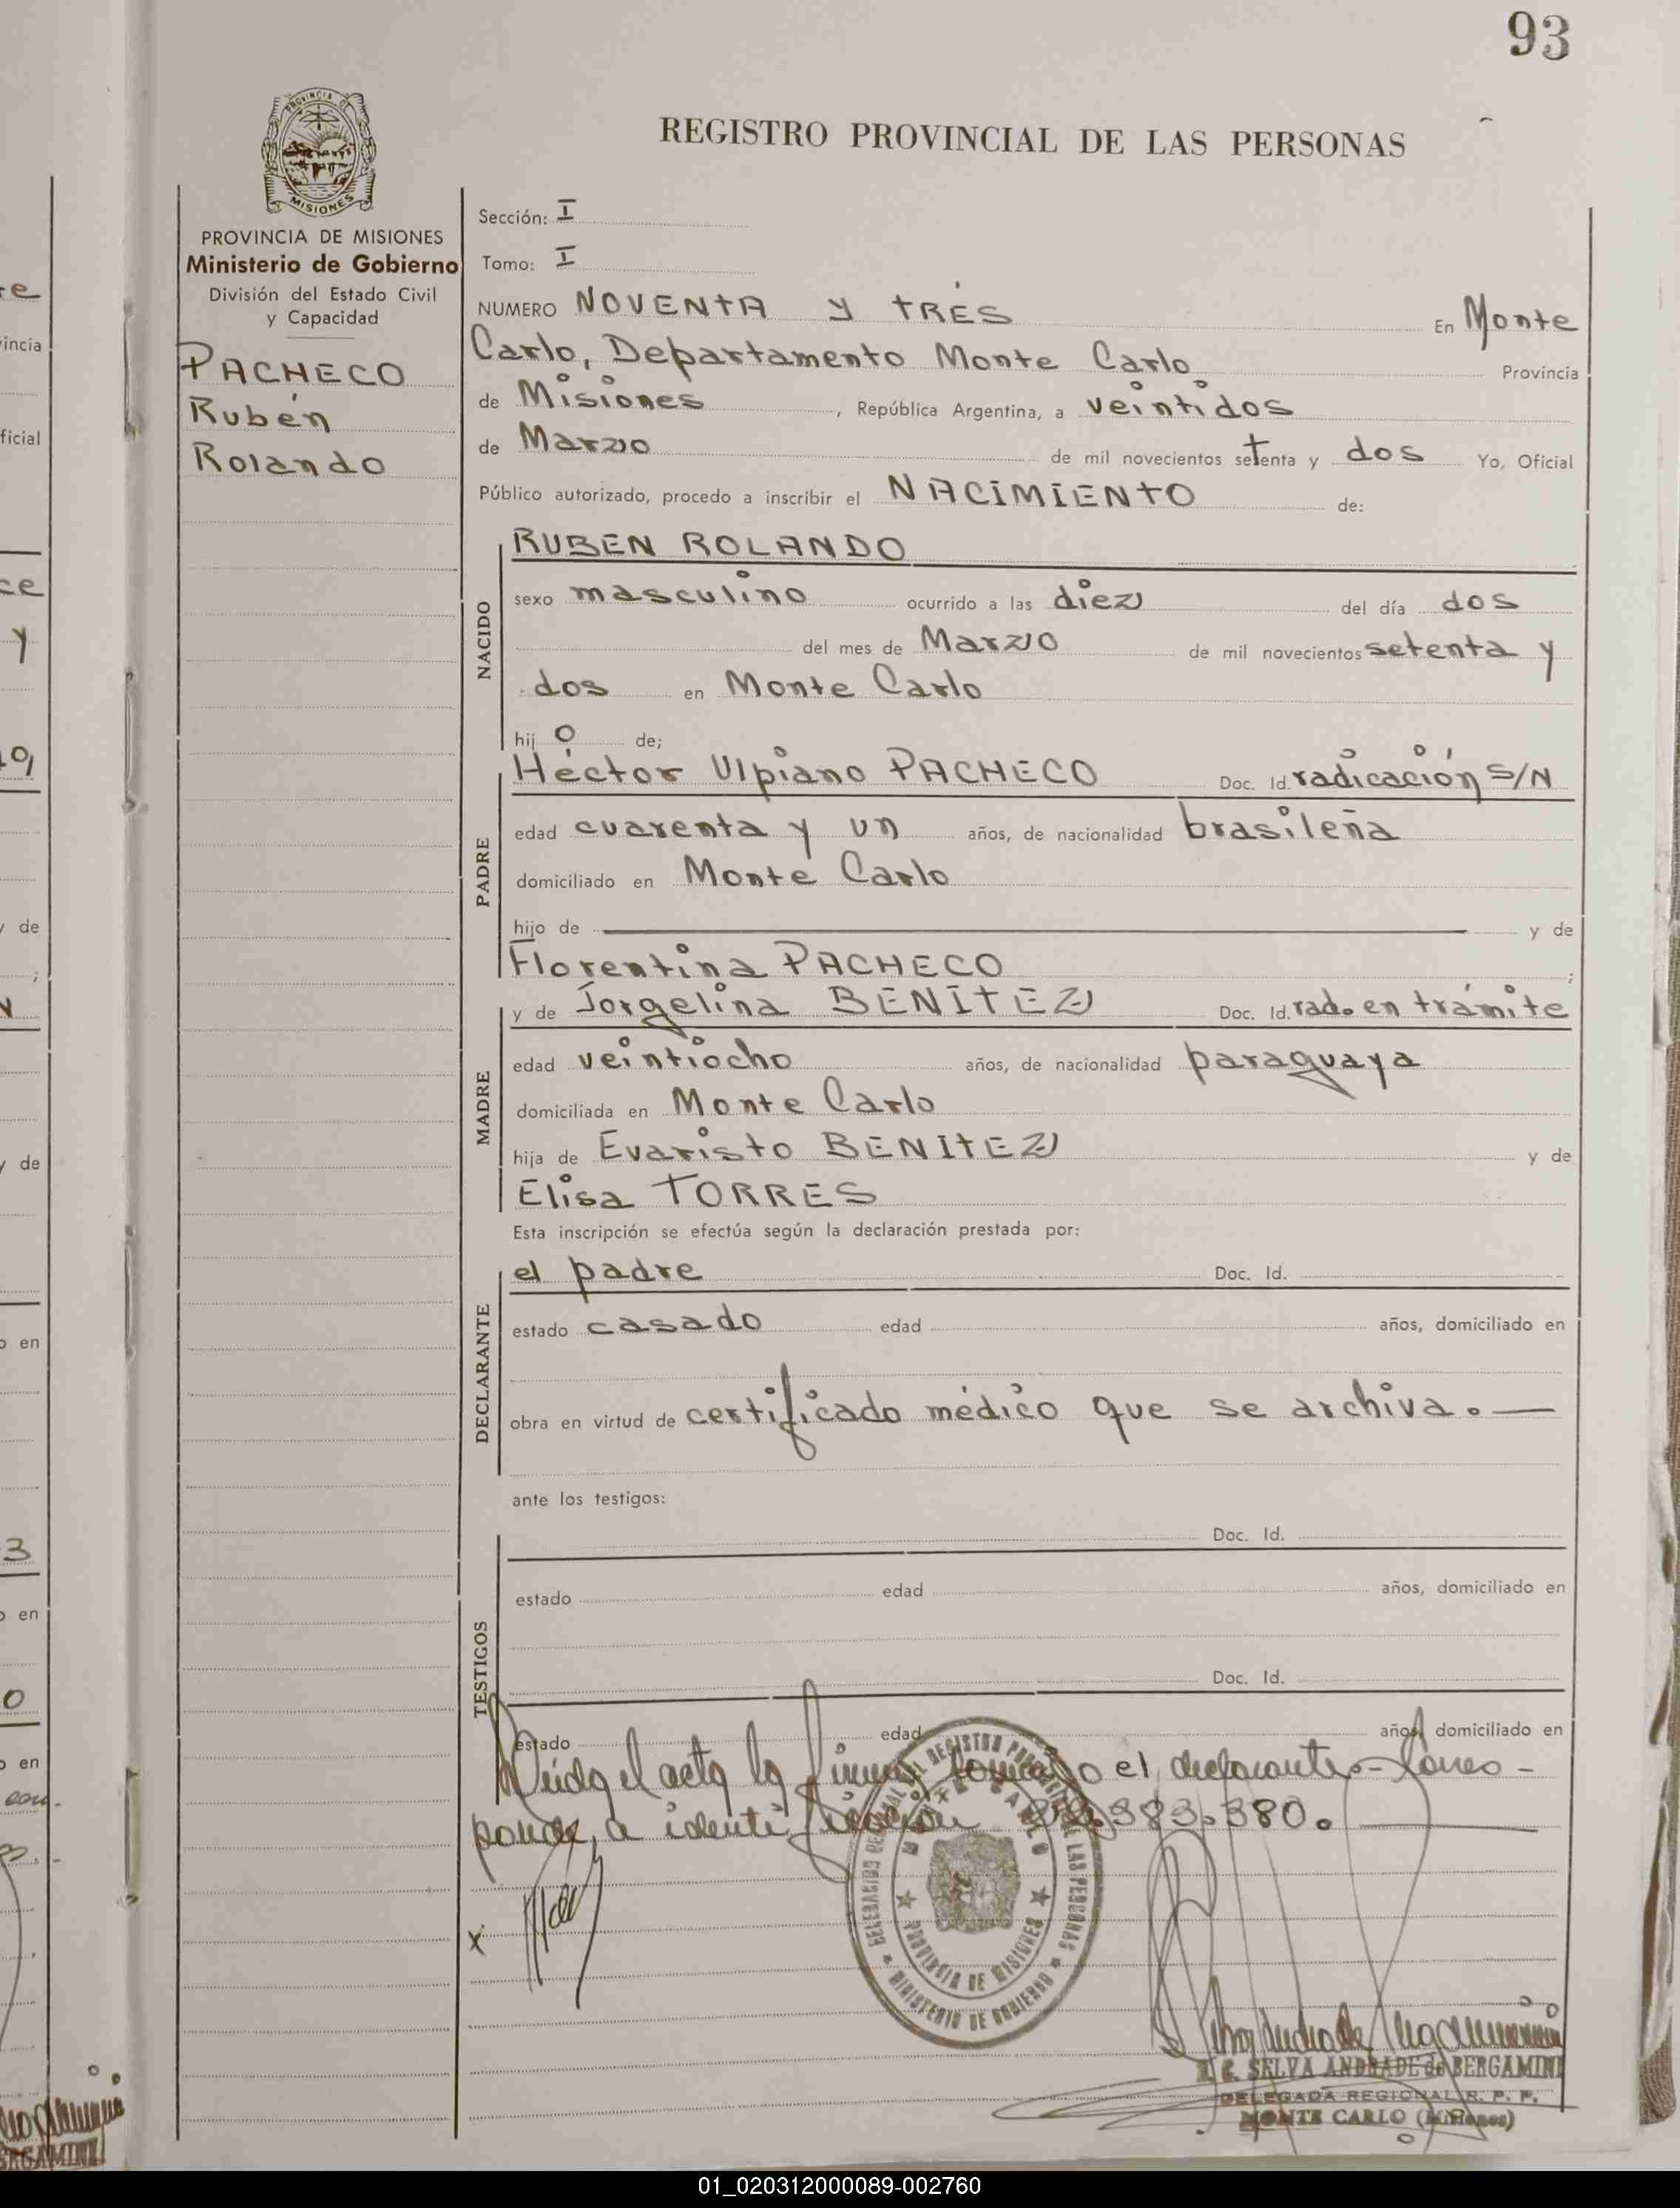 93
REGISTRO PROVINCIAL DE LAS PERSONAS
PROVINCIA DE MISIONES
Ministerio de Gobierno
División del Estado Civil
y Capacidad
PACHECO
Rubén
Rolando
Sección: I
Tomo: I
NUMERO NOVENTA y TRÉS En Monte
Carlo, Departamento Monte Carlo Provincia
de Misiones, República Argentina, a veintidos
de Marzo de mil novecientos setenta y dos Yo, Oficial
Público autorizado, procedo a inscribir el NACIMIENTO de:
NACIDO
RUBEN ROLANDO
sexo masculino ocurrido a las diez del día dos
del mes de Marzo de mil novecientos setenta y
dos en Monte Carlo
hij o de;
PADRE
Héctor Ulpiano PACHECO Doc. Id. radicación S/N
edad cuarenta y un años, de nacionalidad brasileña
domiciliado en Monte Carlo
hijo de y de
Florentina PACHECO ;
MADRE
y de Jorgelina BENITEZ Doc. Id. rad. en trámite
edad veintiocho años, de nacionalidad paraguaya
domiciliada en Monte Carlo
hija de Evaristo BENITEZ y de
Elisa TORRES
Esta inscripción se efectúa según la declaración prestada por:
DECLARANTE
el padre Doc. Id.
estado casado edad años, domiciliado en
obra en virtud de certificado médico que se archiva. —
ante los testigos:
TESTIGOS
Doc. Id.
estado edad años, domiciliado en
Doc. Id.
estado edad años, domiciliado en
Leída el acta la firma conmigo el declarante.- Corres-
ponde a identificación 383.380. —
X
DELEGACION REGIONAL DEL REGISTRO PROVINCIAL DE LAS PERSONAS
MONTE CARLO
PROVINCIA DE MISIONES
MINISTERIO DE GOBIERNO
SELVA ANDRADE de BERGAMINI
DELEGADA REGIONAL R. P. P.
MONTE CARLO (Misiones)
01_020312000089-002760